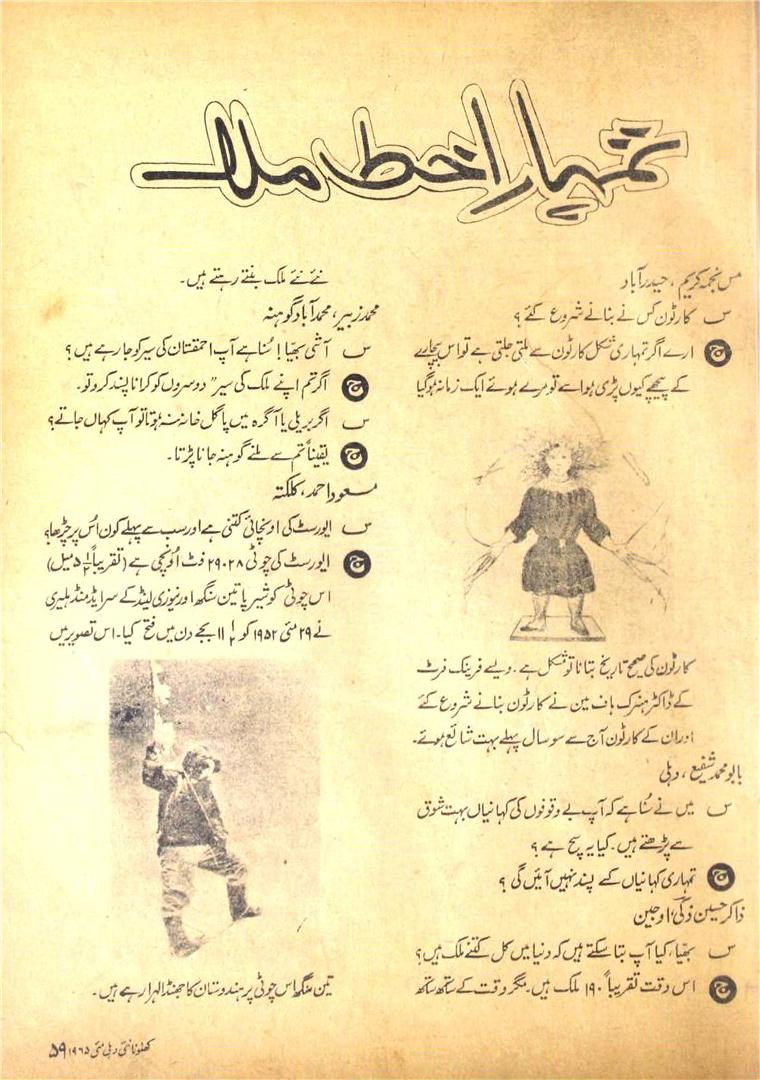 تمہارا خط ملا
مس نجمہ کریم، حیدرآباد
س کارٹون کس نے بنانے شروع کئے؟
ج ارے اگر تمہاری شکل کارٹون سے ملتی جلتی ہے تو اس بیچارے
کے پیچھے کیوں پڑی ہو اسے تو مرے ہوئے ایک زمانہ ہو گیا
کارٹون کی صحیح تاریخ بتانا تو مشکل ہے۔ ویسے فرینک فرٹ
کے ڈاکٹر ہنرک ہاف مین نے کارٹون بنانے شروع کئے
اور ان کے کارٹون آج سے سو سال پہلے بہت شائع ہوئے۔
بابو محمد شفیع، دہلی
س میں نے سُنا ہے کہ آپ بے وقوفوں کی کہانیاں بہت شوق
سے پڑھتے ہیں۔ کیا یہ سچ ہے؟
ج تمہاری کہانیاں کسے پسند نہیں آئیں گی؟
ذاکر حسین ذکی، اوجین
س بھیا، کیا آپ بتا سکتے ہیں کہ دنیا میں کل کتنے ملک ہیں؟
ج اس وقت تقریباً ۱۹۰ ملک ہیں۔ مگر وقت کے ساتھ ساتھ
نئے نئے ملک بنتے رہتے ہیں۔
محمد زبیر، محمد آباد گوہنہ
س آشی بھیّا! سُنا ہے آپ احمقستان کی سیر کو جا رہے ہیں؟
ج اگر تم اپنے ملک کی سیر" دوسروں کو کرانا پسند کرو تو۔
س اگر بریلی یا آگرہ میں پاگل خانہ نہ ہوتا تو آپ کہاں جاتے؟
ج یقیناً تم سے ملنے گوہنہ جانا پڑتا۔
مسعود احمد، کلکتہ
س ایورسٹ کی اونچائی کتنی ہے اور سب سے پہلے کون اُس پر چڑھا؟
ج ایورسٹ کی چوٹی ۲۹۰۲۸ فٹ اُونچی ہے (تقریباً ½۵ میل)
اس چوٹی کو شیرپا تین سنگھ اور نیوزی لینڈ کے سر ایڈمنڈ ہلیری
نے ۲۹ مئی ۱۹۵۲ کو ½ ۱۱ بجے دن میں فتح کیا۔ اس تصویر میں
تین سنگھ اس چوٹی پر ہندوستان کا جھنڈا لہرا رہے ہیں۔
کھلونا نئی دہلی مئی ۱۹۶۵ ۵۹